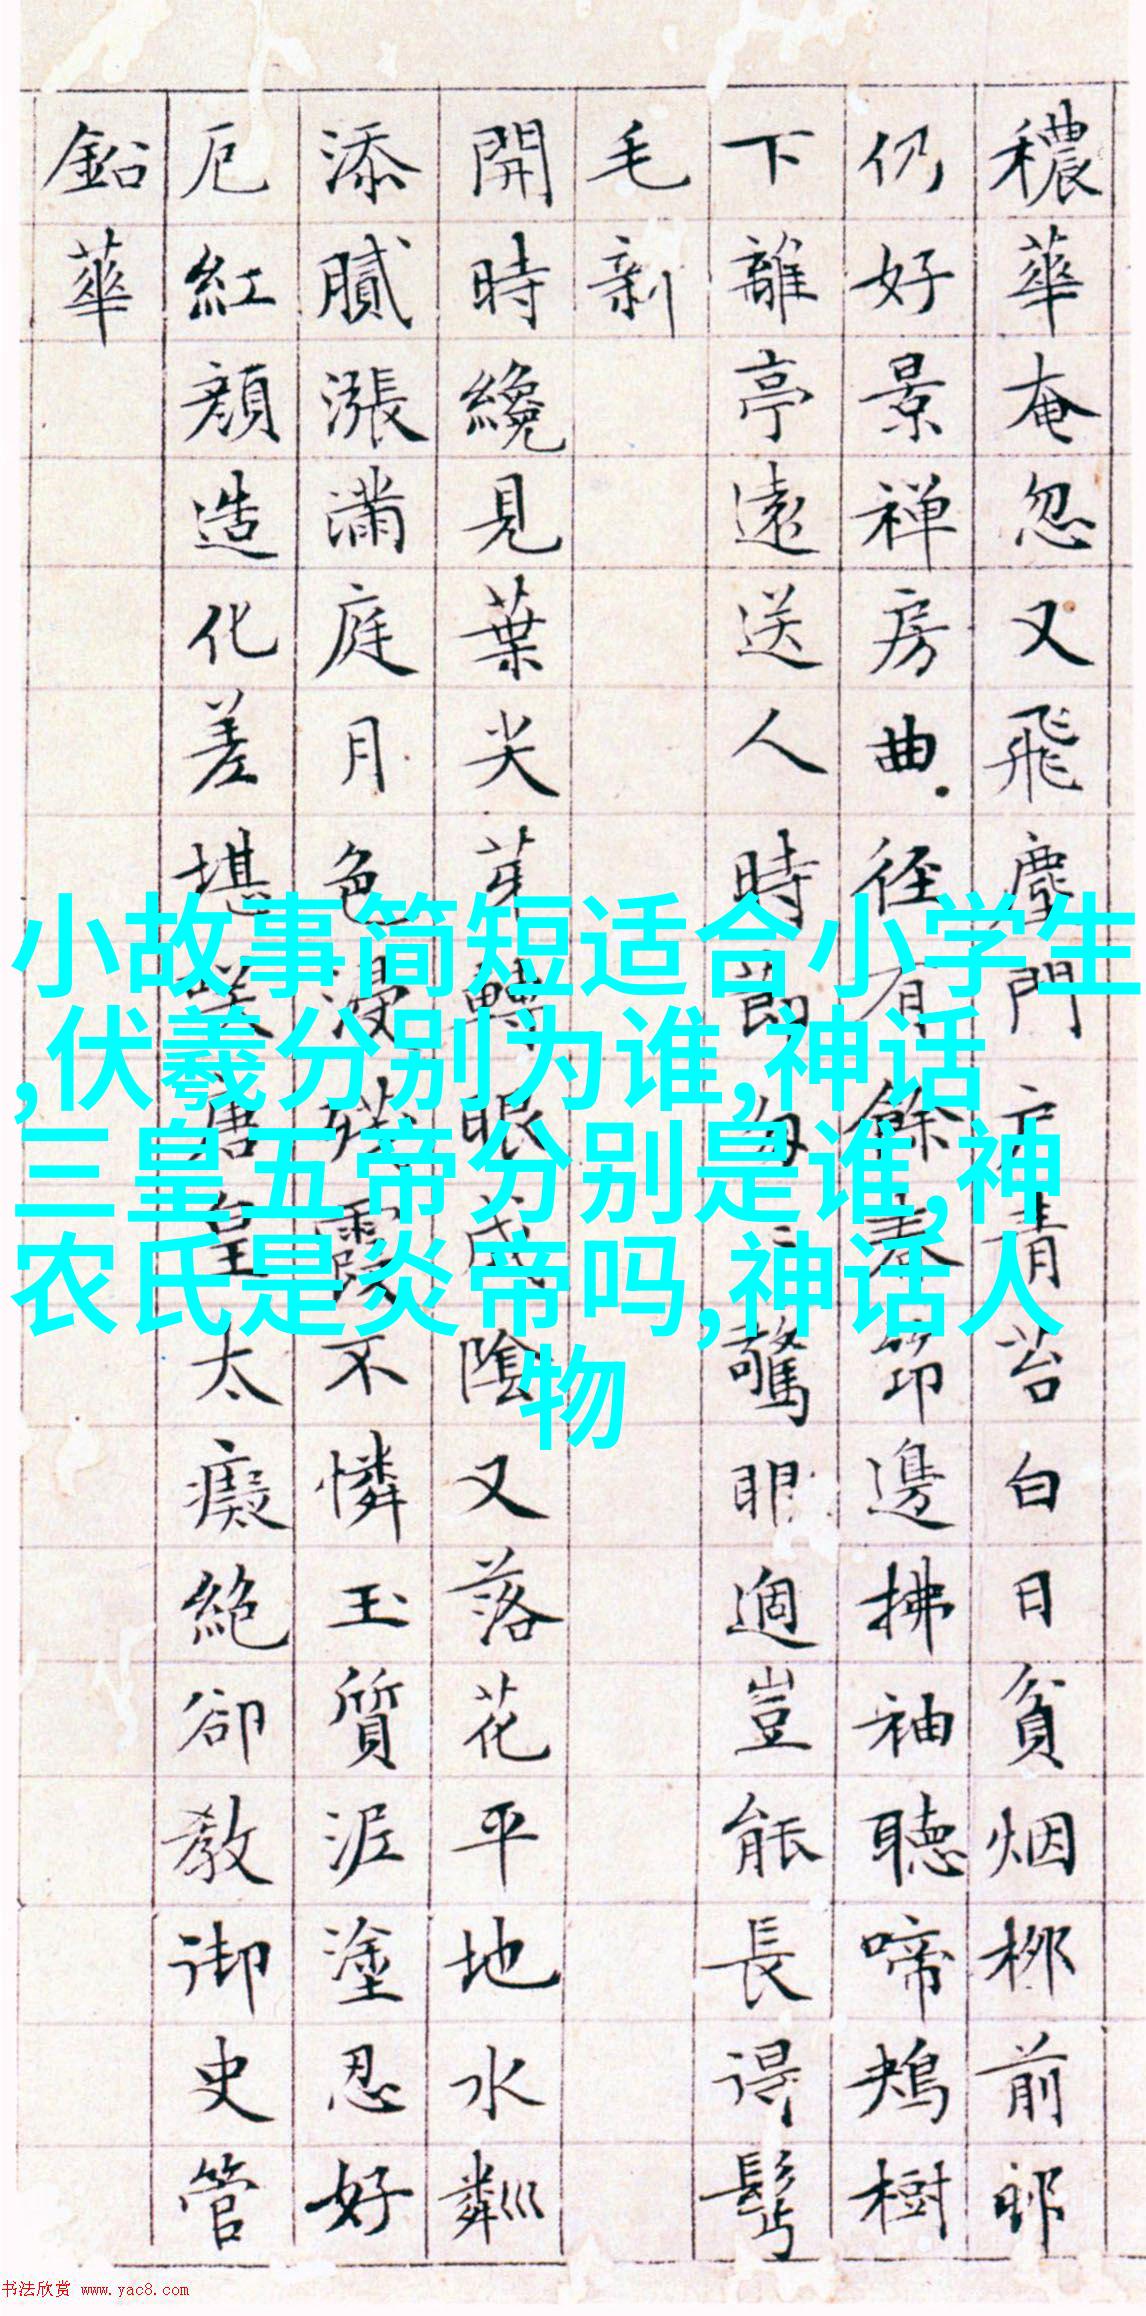 穠華奄忽又飛塵門
青苔白日貧烟柳前郎
仍好景禅房曲徑有餘春筇邊拂袖聽啼鴂樹
下離亭遠送人時節匆
驚眼過豈能長得鬓
毛新
開時纔見葉尖芽轉眼成陰又落花平地水粼巛
添膩漲滿庭月色浸
霞不憐玉質泥塗忍好
厄紅顔造化差堪笑唐皇太癡絕卻教御史管
鉛華
小故事简短适合小学生
,伏羲分别为谁,神话
三皇五帝分别是谁,神
农氏是炎帝吗,神话人
物
书法欣赏 www.yac8.com